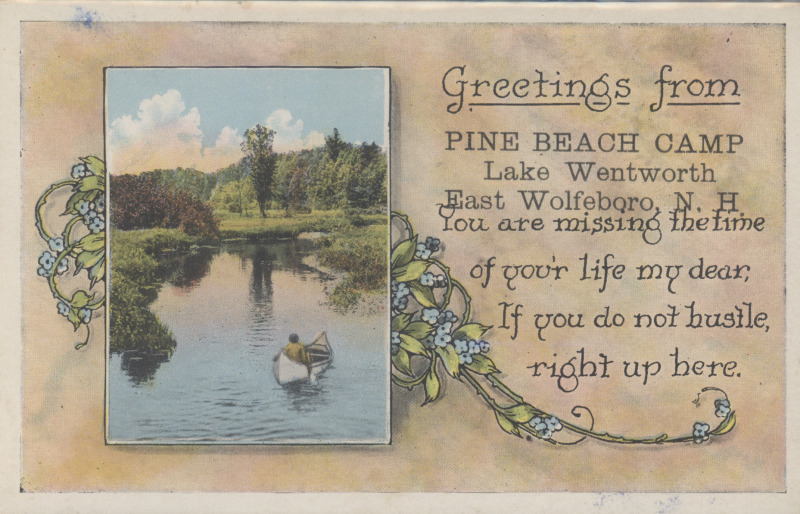 Greetings from
PINE BEACH CAMP
Lake Wentworth
East Wolfeboro, N. H
You are missing the time
of you'r life my dear,
If you do not hustle,
right up here.